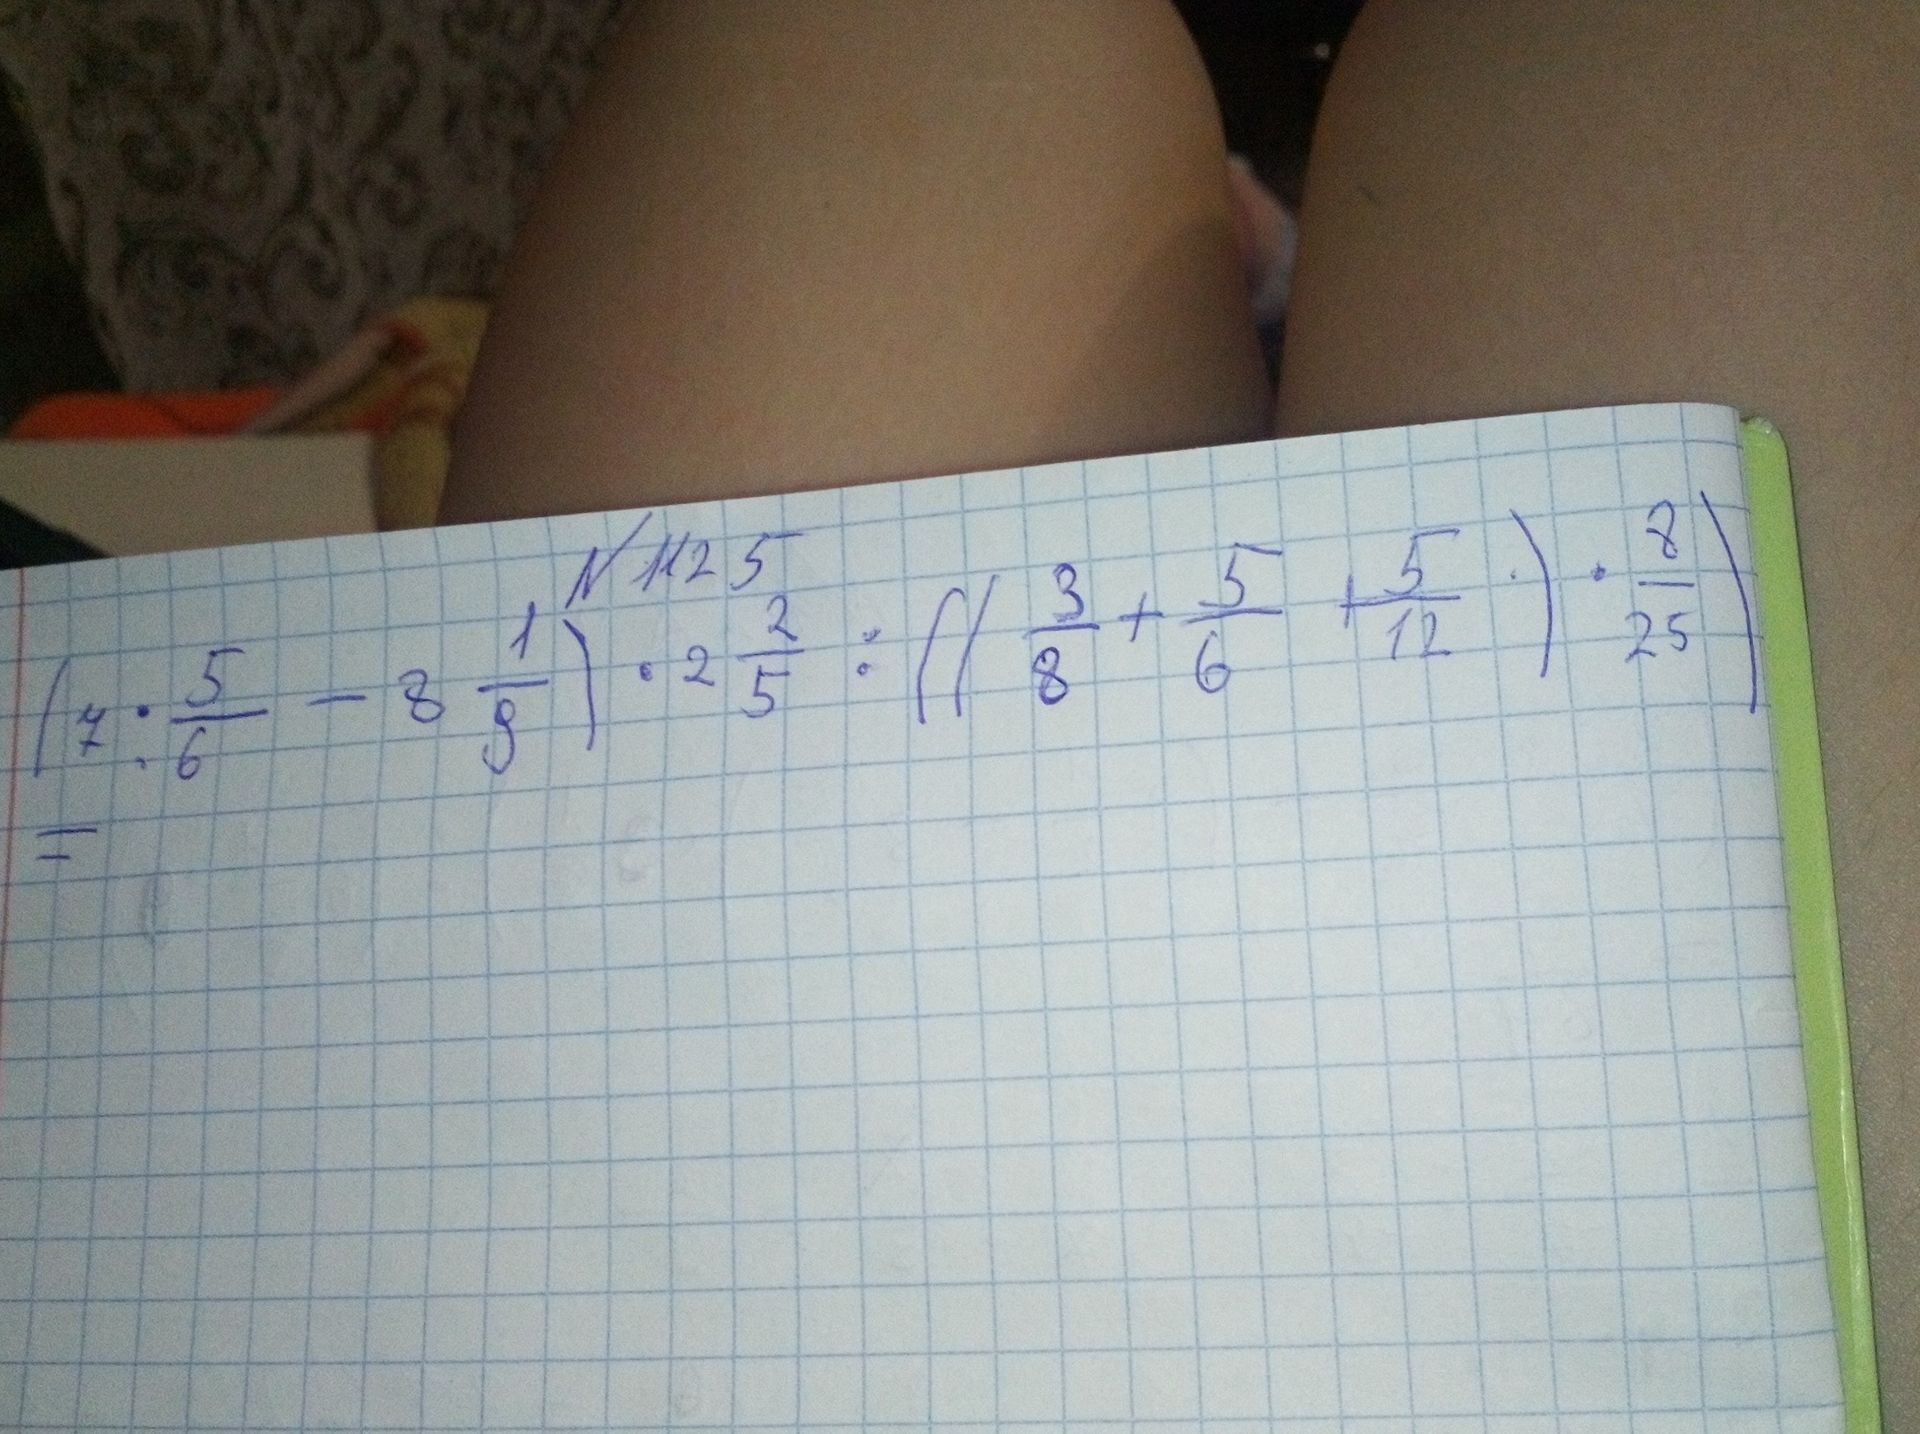 N 1125
(7 : 5/6 - 8 1/9) · 2 2/5 : ((3/8 + 5/6 + 5/12) · 8/25)
=